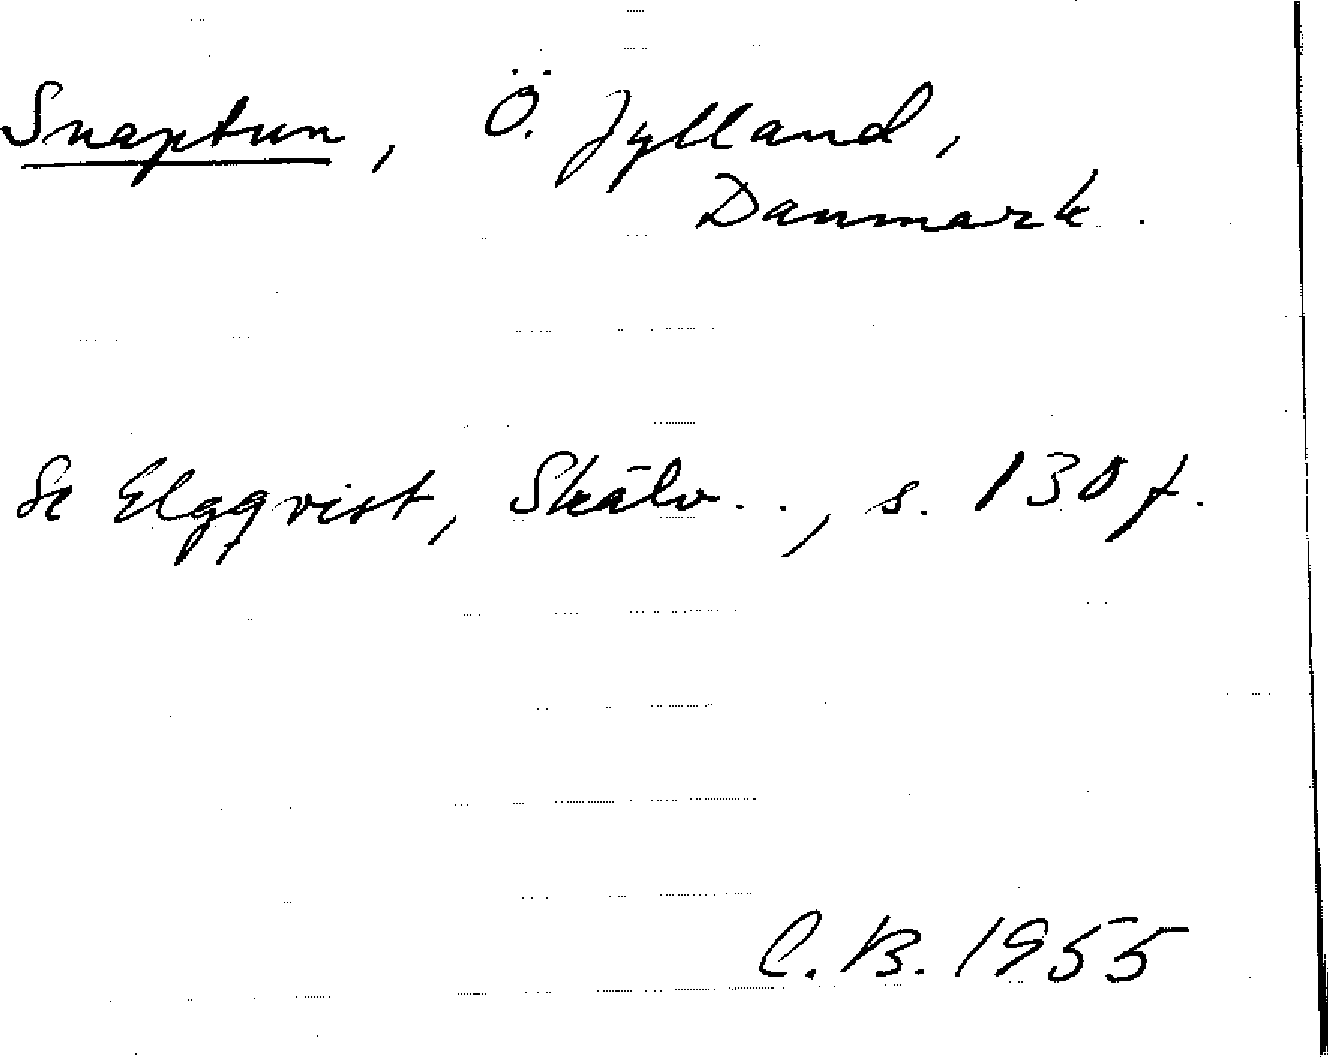 Snaptun, Ö. Jylland,
Danmark.
Se Elgqvist, Skälv. . ., s. 130 f.
C.B. 1955